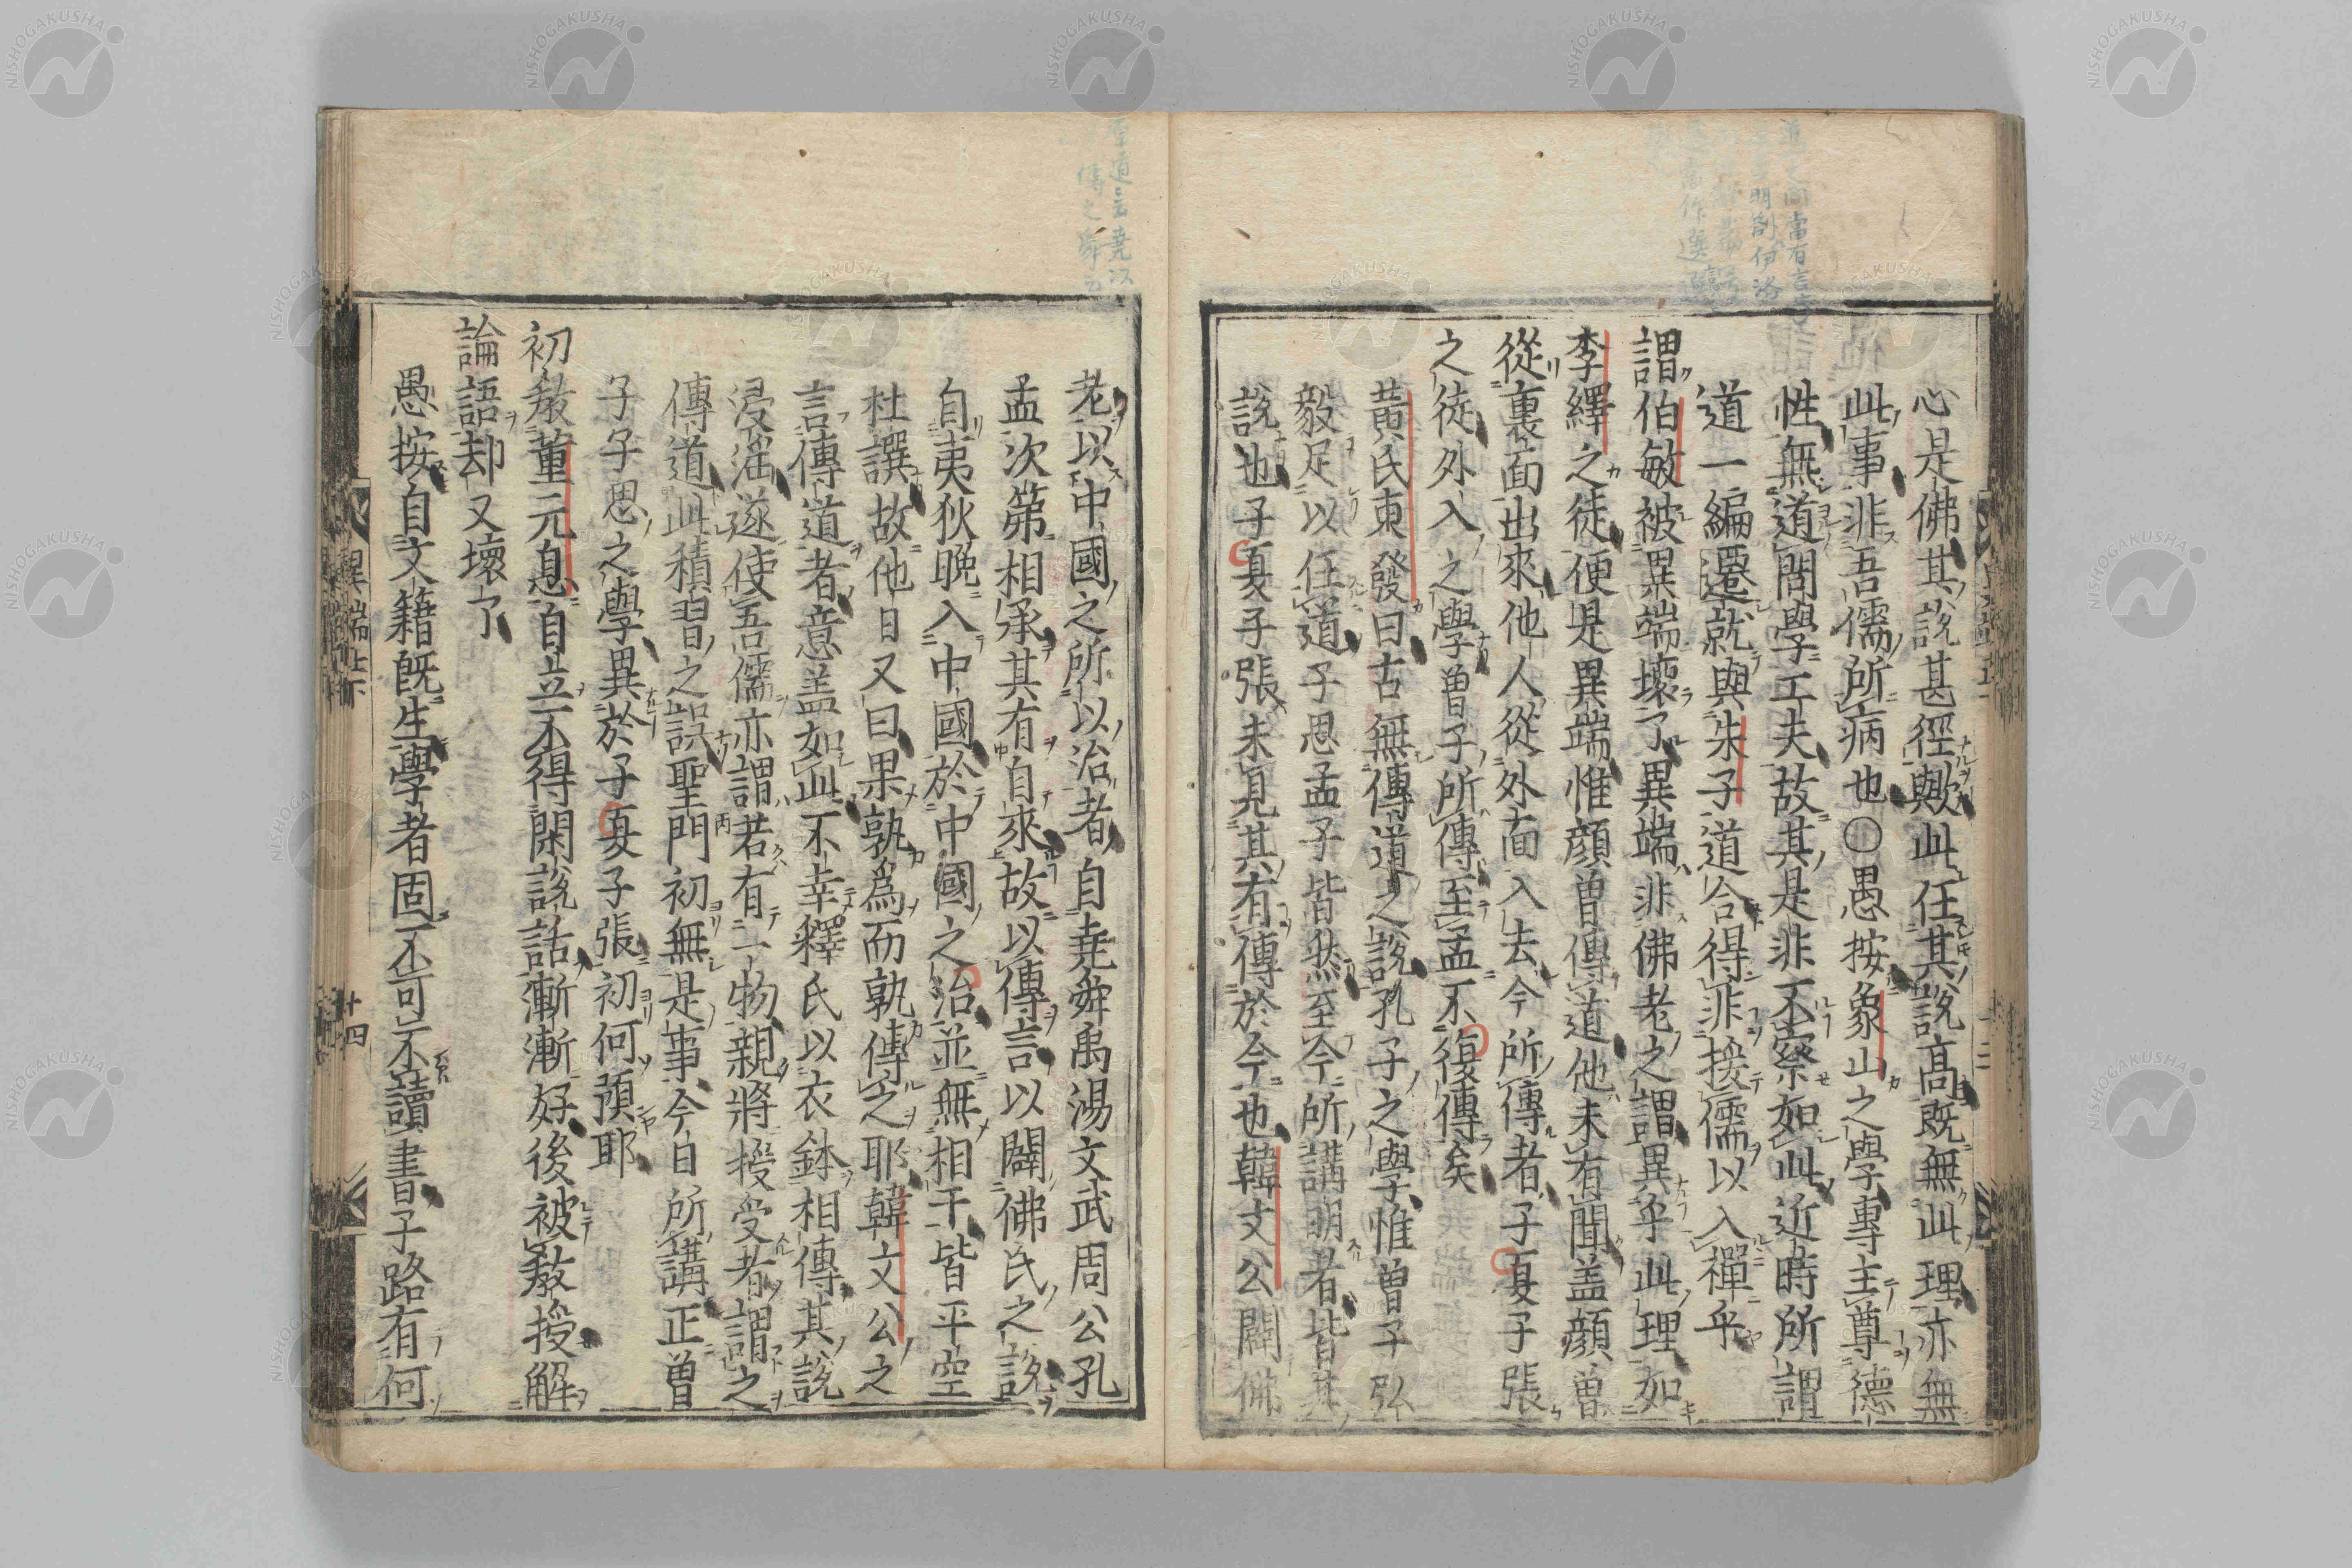 心是佛其說甚徑歟此任其說高既無此理亦無
此事非吾儒所病也○愚按象山之學專主尊德
性無道問學工夫故其是非不察如此近時所謂
道一編遷就與朱子道合得非援儒以入禪乎
謂伯敏被異端壞了異端非佛老之謂異乎此理如
李繹之徒便是異端惟顔曽傳道他未有聞盖顔曽
從裏面出來他人從外面入去今所傳者子夏子張
之徒外入之學曽子所傳至孟不復傳矣
黃氏東發曰古無傳道之說孔子之學惟曽子弘
毅足以任道子思孟子皆然至今所講明者皆其
說也子夏子張未見其有傳於今也韓文公闢佛
老以中國之所以治者自堯舜禹湯文武周公孔
孟次第相承其有自來故以傳言以闢佛氏之說
自夷狄晚入中國於中國之治並無相干皆平空
杜譔故他日又曰果孰爲而孰傳之耶韓文公之
言傳道者意盖如此不幸釋氏以衣鉢相傳其說
浸滛遂使吾儒亦謂若有一物親將授受者謂之
傳道此積習之誤聖門初無是事今日所講正曽
子子思之學異於子夏子張初何預耶
初敎董元息自立不得閑說話漸漸好後被敎授解
論語却又壞了
愚按自文籍既生學者固不可不讀書子路有何
異端上下
十四